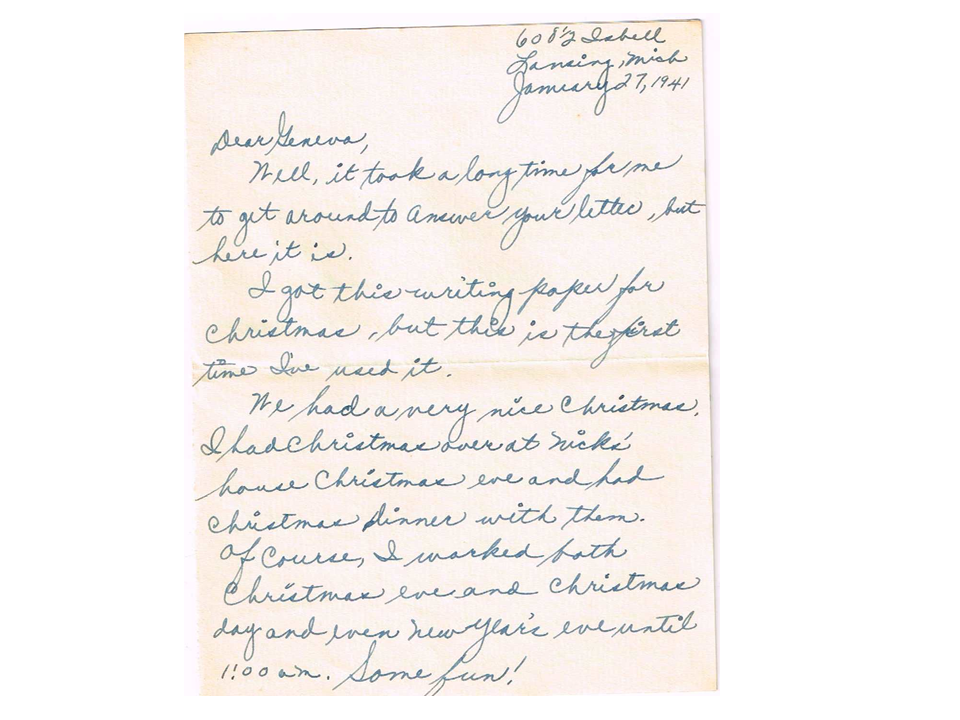 608½ Isbell
Lansing, Mich
January 27, 1941
Dear Geneva,
Well, it took a long time for me
to get around to answer your letter, but
here it is.
I got this writing paper for
Christmas, but this is the first
time I've used it.
We had a very nice Christmas.
I had Christmas over at Nicks'
house Christmas eve and had
Christmas dinner with them.
Of course, I worked both
Christmas eve and Christmas
day and even New Year's eve until
1:00 am. Some fun!